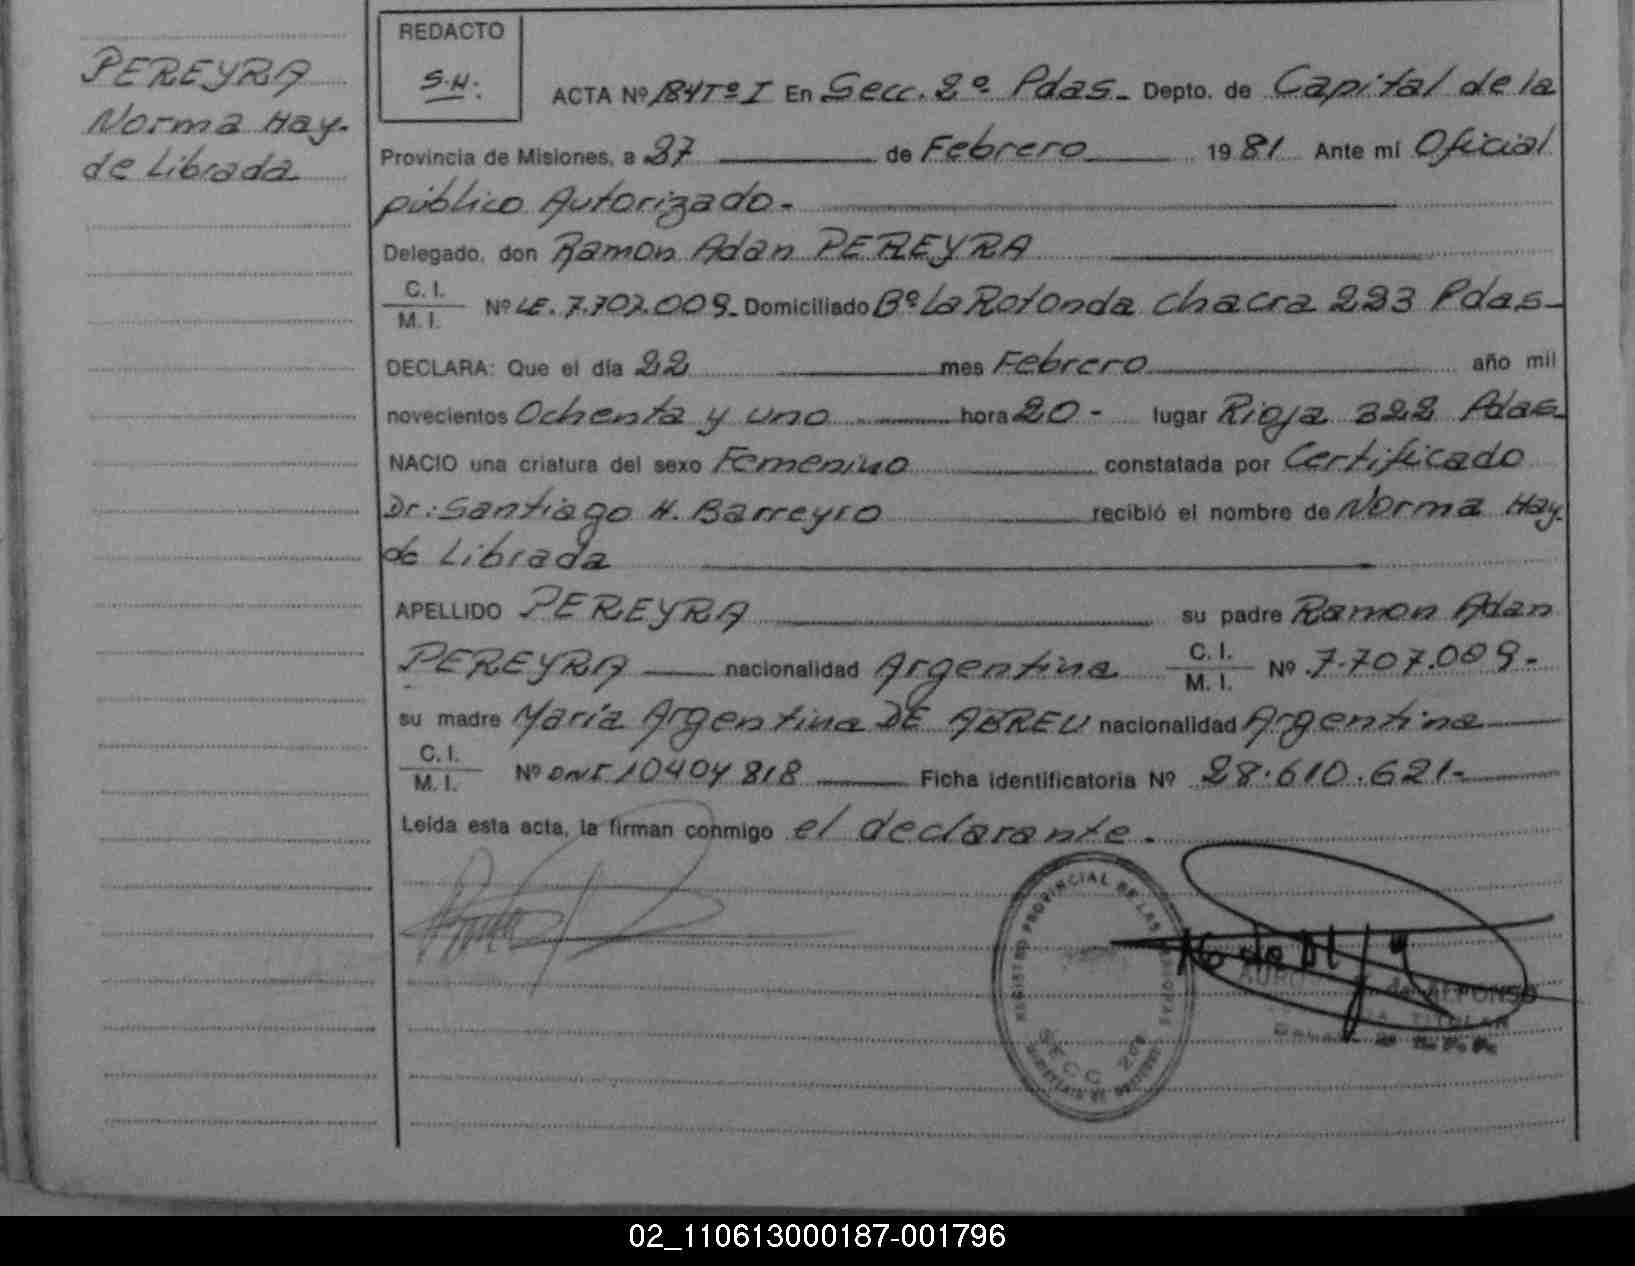 PEREYRA
Norma Hay-
de Librada
REDACTO
S.H.
ACTA Nº 184Tº I En Secc. 2º Pdas. Depto. de Capital de la
Provincia de Misiones, a 27 de Febrero 1981 Ante mí Oficial
público Autorizado.-
Delegado, don Ramon Adan PEREYRA
C. I.
M. I.
Nº LE. 7.707.009. Domiciliado Bº La Rotonda chacra 223 Pdas-
DECLARA: Que el día 22 mes Febrero año mil
novecientos Ochenta y uno hora 20- lugar Rioja 322 Pdas.
NACIO una criatura del sexo Femenino constatada por Certificado
Dr: Santiago H. Barreyro recibió el nombre de Norma Hay-
de Librada
APELLIDO PEREYRA su padre Ramon Adan
PEREYRA nacionalidad Argentina C. I.
M. I. Nº 7.707.009.-
su madre María Argentina DE ABREU nacionalidad Argentina
C. I.
M. I.
Nº DNI 10404818 Ficha identificatoria Nº 28.610.621.-
Leída esta acta, la firman conmigo el declarante.
REGISTRO PROVINCIAL DE LAS PERSONAS
SECC 2da
de ALFONSO
TITULAR
02_110613000187-001796